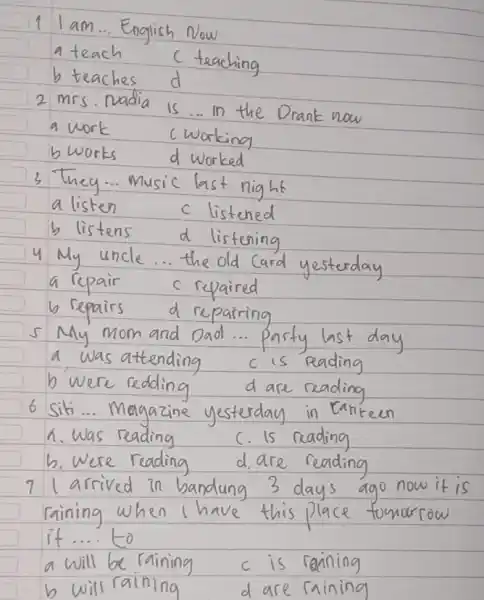 1 I am... English Now
a teach c teaching
b teaches d
2 mrs. Nadia is ... in the Drank now
a work c working
b works d worked
3 They... music last night
a listen c listened
b listens d listening
4 My uncle ... the old Card yesterday
a repair c repaired
b repairs d repairing
5 My mom and Dad ... party last day
a was attending c is reading
b were redding d are reading
6 Siti ... Magazine yesterday in canteen
A. was reading c. is reading
b. were reading d. are reading
7 I arrived in bandung 3 days ago now it is
raining when i have this place tomorrow
it .... to
a will be raining c is raining
b will raining d are raining